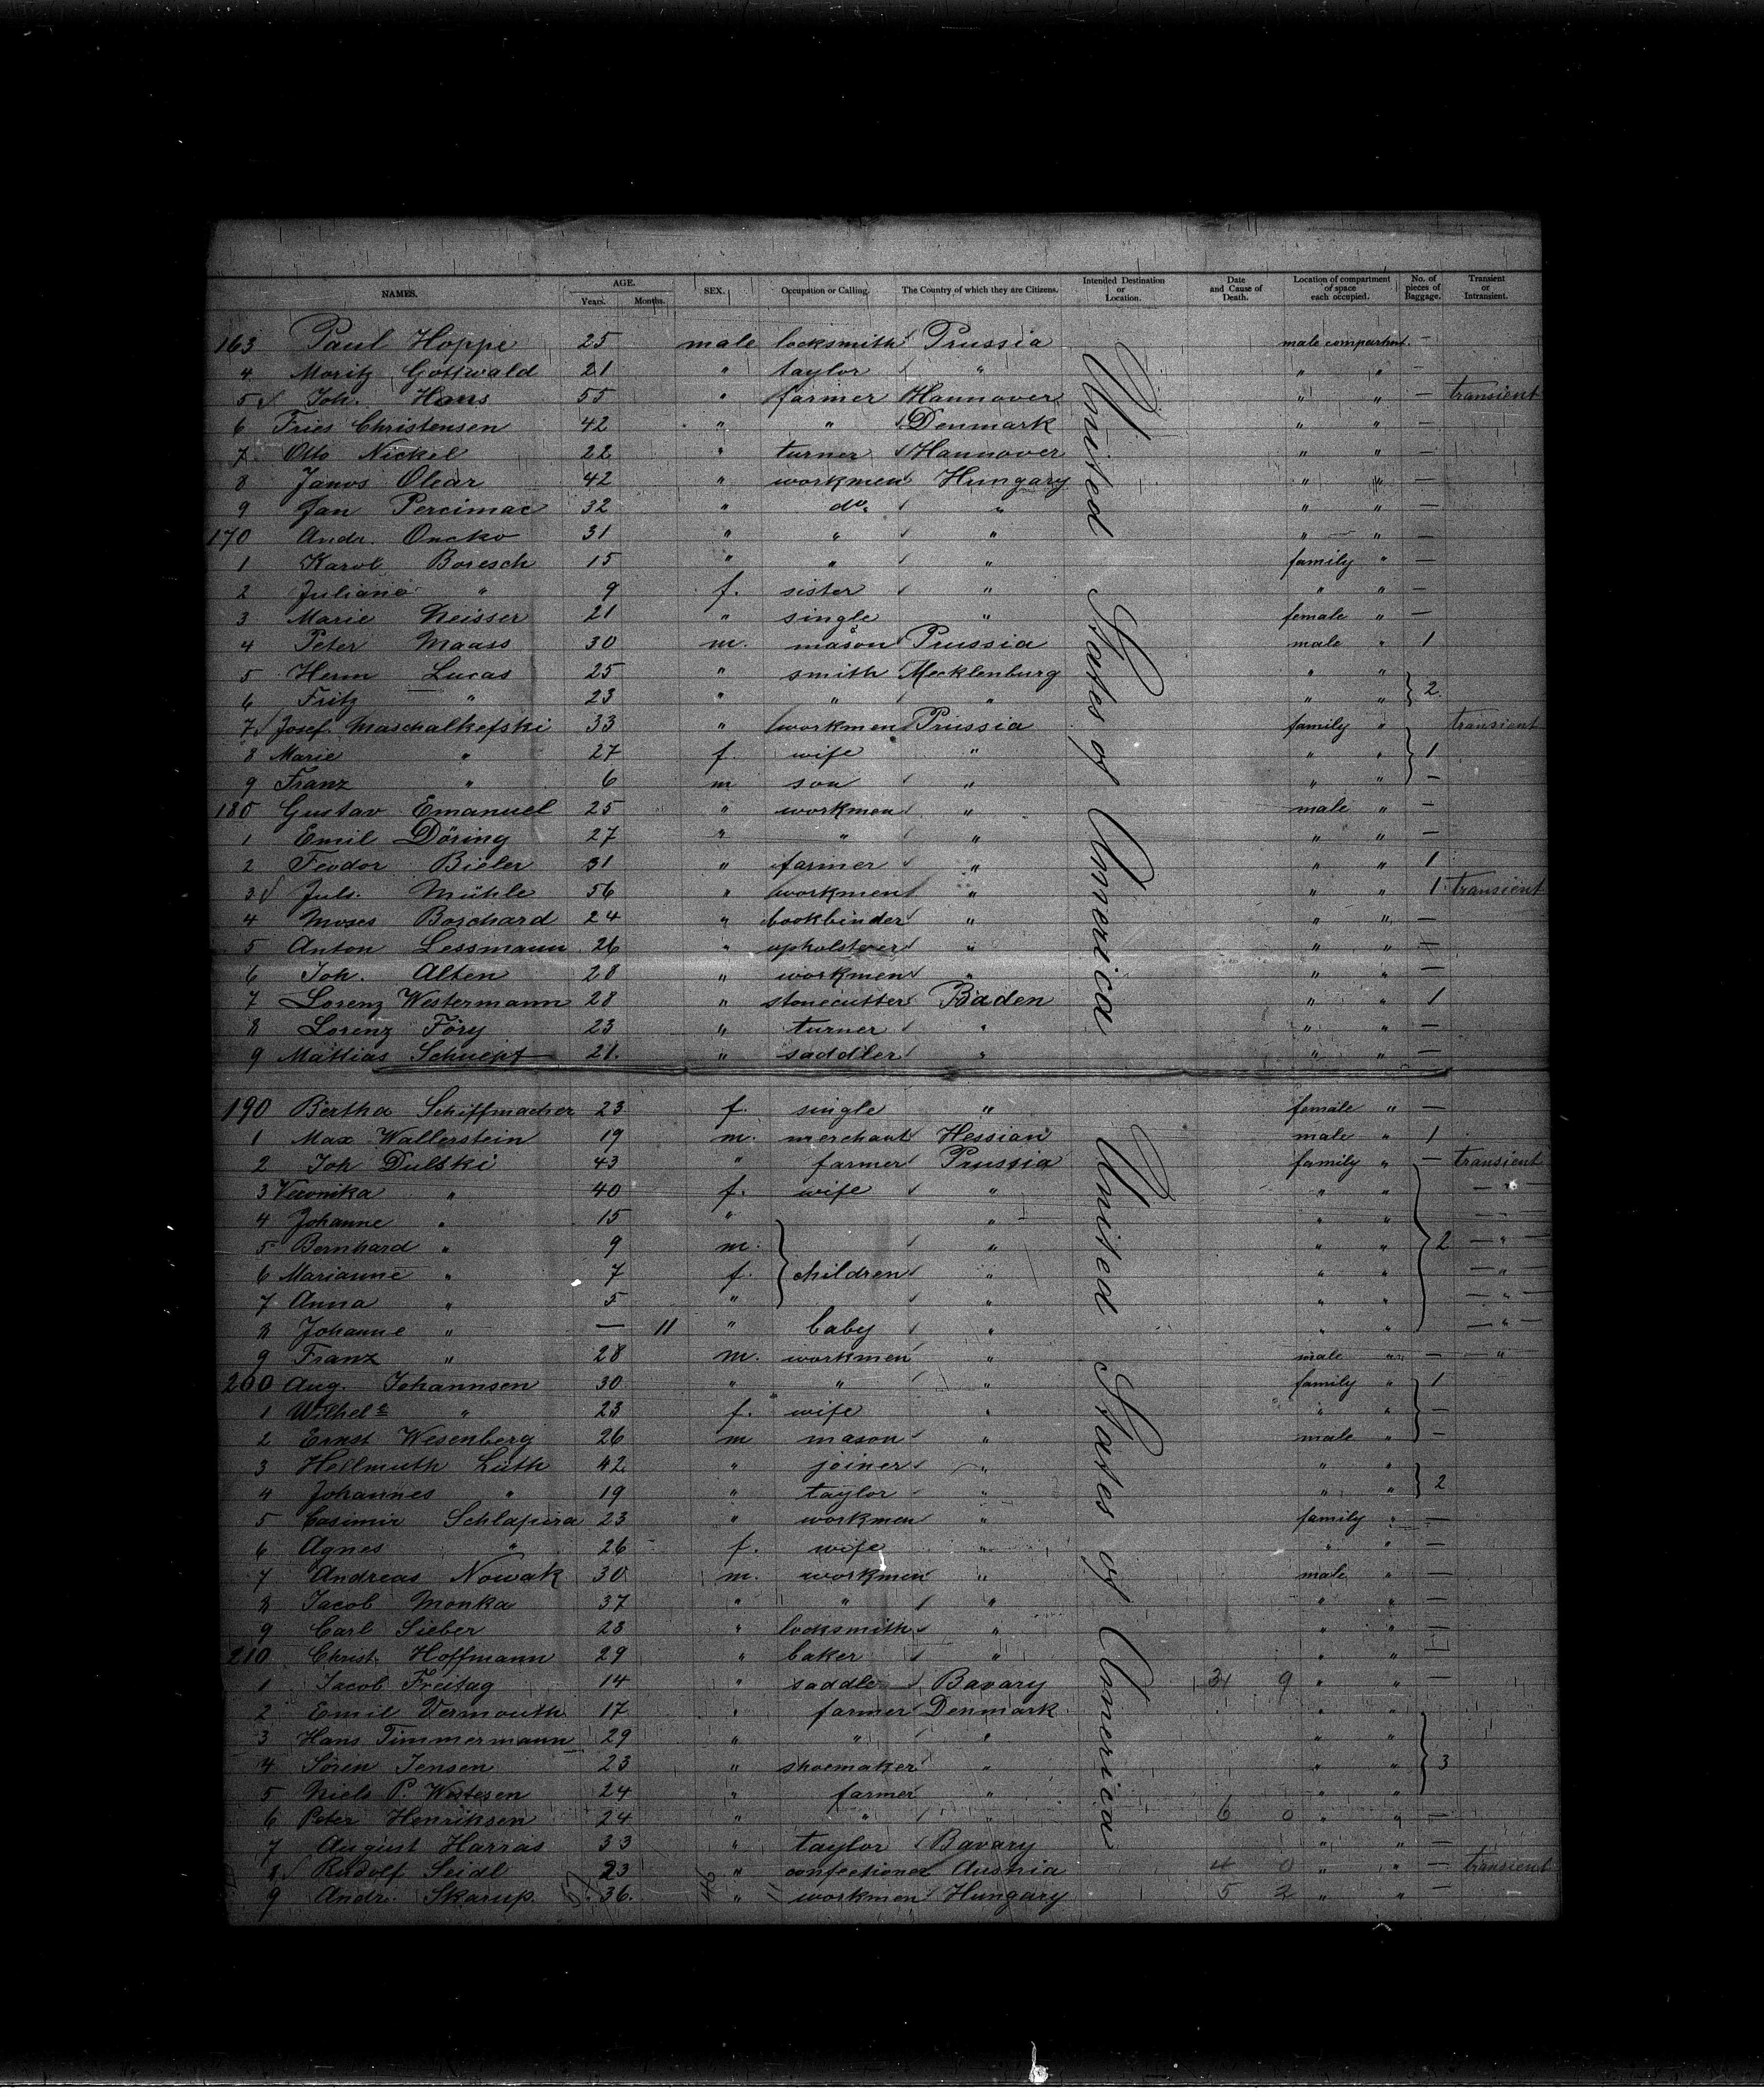 NAMES. AGE. Years. Months. SEX. Occupation or Calling. The Country of which they are Citizens. Intended Destination or Location. Date and Cause of Death. Location of compartment of space each occupied. No. of pieces of Baggage. Transient or Intransient.
163 Paul Hoppe 25 male locksmith Prussia male compartmt. —
4 Moritz Gottwald 21 " taylor " " " —
5 Joh. Hans 55 " farmer Hannover " " — transient
6 Fries Christensen 42 " " Denmark " " —
7 Otto Nickel 22 " turner Hannover " " —
8 Janos Olear 42 " workmen Hungary " " —
9 Jan Percimac 32 " do. " " " —
170 Andr. Oncko 31 " " " " " —
1 Karol Boresch 15 " " " family " —
2 Juliana " 9 f. sister " " " —
3 Marie Neisser 21 " single " female " —
4 Peter Maass 30 m. mason Prussia male " 1
5 Herm Lucas 25 " smith Mecklenburg " "
6 Fritz " 23 " " " " " 2
7 Josef Maschalkefski 33 " workmen Prussia family " transient
8 Marie " 27 f. wife " " " 1
9 Franz " 6 m son " " " —
180 Gustav Emanuel 25 " workmen " male " —
1 Emil Döring 27 " " " " " —
2 Feodor Bieler 31 " farmer " " " 1
3 Juls. Mühle 56 " workmen " " " 1 transient
4 Moses Boschard 24 " bookbinder " " " —
5 Anton Lessmann 26 " upholsterer " " " —
6 Joh. Alten 28 " workmen " " " —
7 Lorenz Westermann 28 " stonecutter Baden " " 1
8 Lorenz Föry 23 " turner " " " —
9 Mattias Schnepf 21. " saddler " " " —
United States of America
190 Bertha Schiffmacher 23 f. single " female " —
1 Max Wallerstein 19 m. merchant Hessian male " 1
2 Joh Dulski 43 " farmer Prussia family " — transient
3 Veronika " 40 f. wife " " " — " —
4 Johanne " 15 " " " " — " —
5 Bernhard " 9 m. " " " 2 — " —
6 Marianne " 7 f. children " " " — " —
7 Anna " 5 " " " " — " —
8 Johanne " — 11 " baby " " " — " —
9 Franz " 28 m. workmen " male " — — "
200 Aug. Johannsen 30 " " " family " 1
1 Wilhele " 23 f. wife " " " —
2 Ernst Wesenberg 26 m mason " male " —
3 Hellmuth Lüth 42 " joiner " " "
4 Johannes " 19 " taylor " " " 2
5 Casimir Schlapura 23 " workmen " family " —
6 Agnes " 26 f. wife " " " —
7 Andreas Nowak 30 m. workmen " male " —
8 Jacob Monka 37 " " " " " —
9 Carl Sieber 23 " locksmith " " " —
210 Christ. Hoffmann 29 " baker " " " —
1 Jacob Freitag 14 " saddler Bavary 31 9 " " —
2 Emil Vermouth 17 " farmer Denmark " "
3 Hans Timmermann 29 " " " " "
4 Sören Jensen 23 " shoemaker " " " 3
5 Niels P. Westesen 24 " farmer " " "
6 Peter Henriksen 24 " " " 6 0 " " —
7 August Harras 33 " taylor Bavary " " —
8 Rudolf Seidl 23 " confectioner Austria 4 0 " " — transient
9 Andr. Skarup 36. " workmen Hungary 5 2 " " —
United States of America